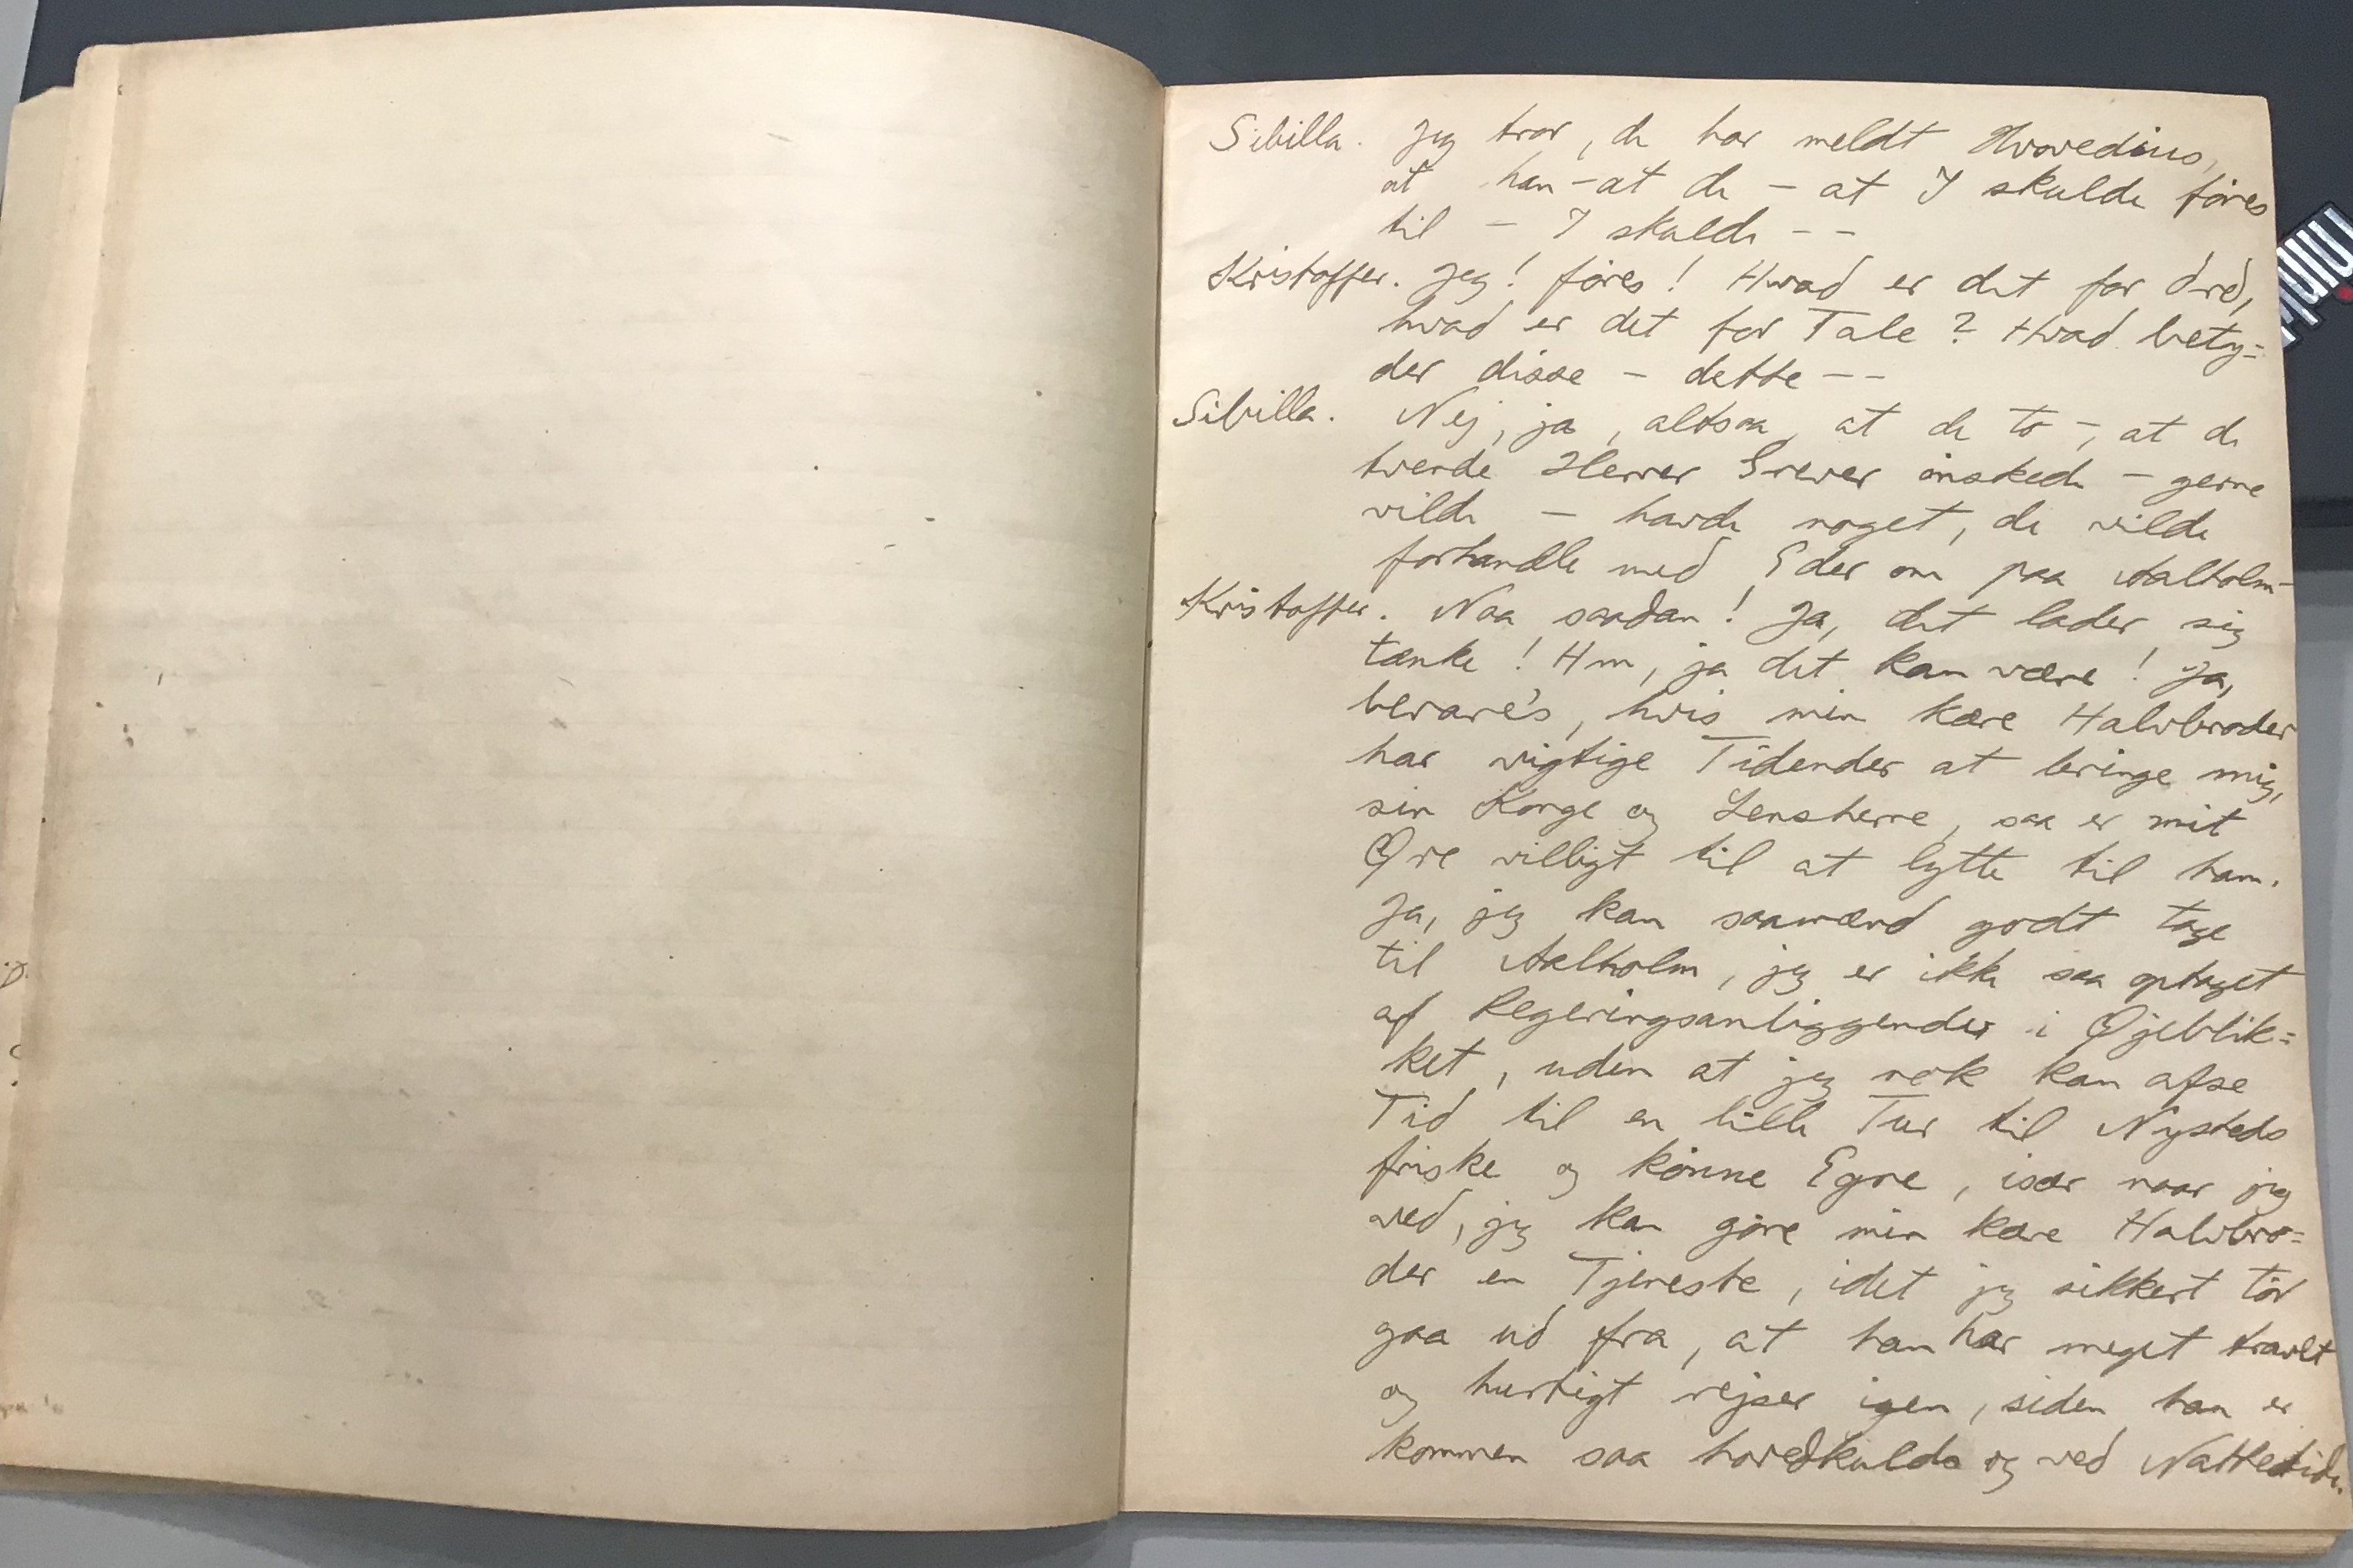 Sibilla. Jeg tror, de har meldt Hvovedius,
at han - at de - at I skulde föres
til - I skulde - -
Kristoffer. Jeg! föres! Hvad er det for Ord,
hvad er det for Tale? Hvad bety=
der disse - dette - -
Sibilla. Nej, ja, altsaa, at de to -, at de
tvende Herrer Grever önskede - gerne
vilde - havde noget, de vilde
forhandle med Eder om paa Aalholm -
Kristoffer. Naa saadan! Ja, det lader sig
tænke! Hm, ja det kan være! Ja,
bevare's, hvis min kære Halvbroder
har vigtige Tidender at bringe mig,
sin Konge og Lensherre, saa er mit
Øre villigt til at lytte til ham.
Ja, jeg kan saamænd godt tage
til Aalholm, jeg er ikke saa optaget
af Regeringsanliggender i Øjeblik=
ket, uden at jeg nok kan afse
Tid til en lille Tur til Nysteds
friske og könne Egne, især naar jeg
ved, jeg kan göre min kære Halvbro=
der en Tjeneste, idet jeg sikkert tör
gaa ud fra, at han har meget travlt
og hurtigt rejser igen, siden han er
kommen saa hovedkulds og ved Nattetide.